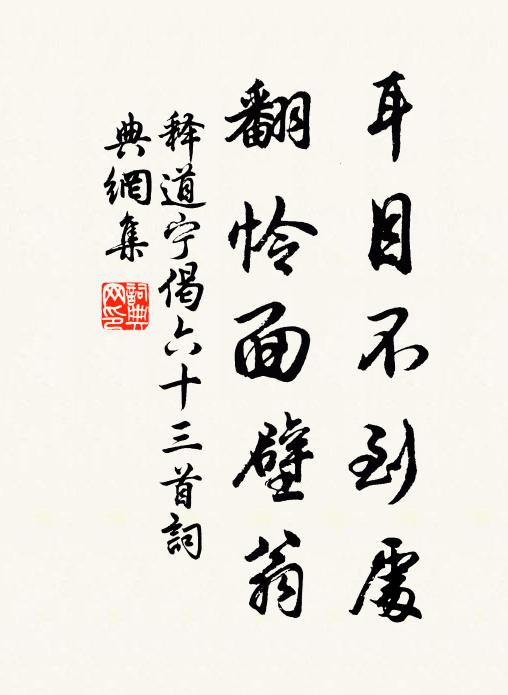 耳目不到處
翻憐面壁翁
释道宁偈六十三首詞
典網集
詞典
网印